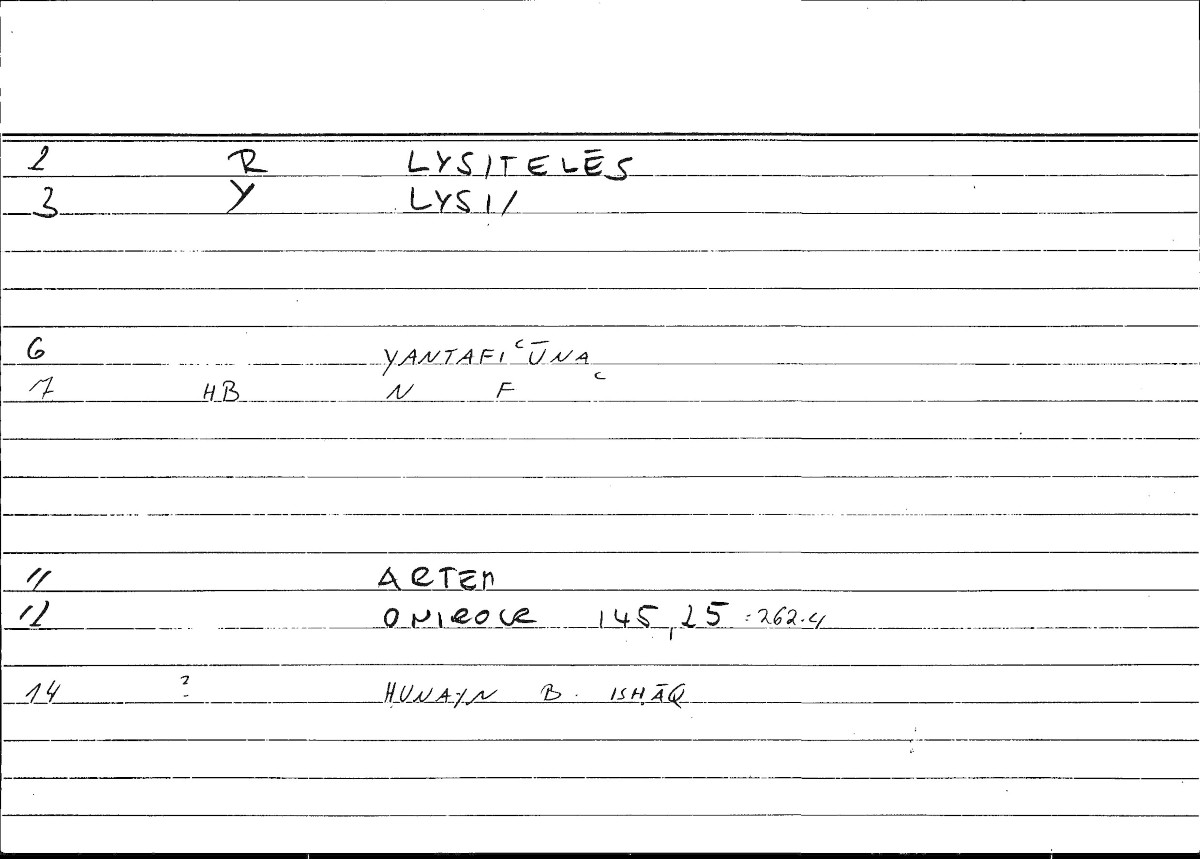 2 R LYSITELĒS
3 Y LYSI/
6 YANTAFIʿŪNA
7 HB N F ʿ
11 ARTEM
12 ONIROCR 145,25 : 262.4
14 ? ḤUNAYN B. ISḤĀQ